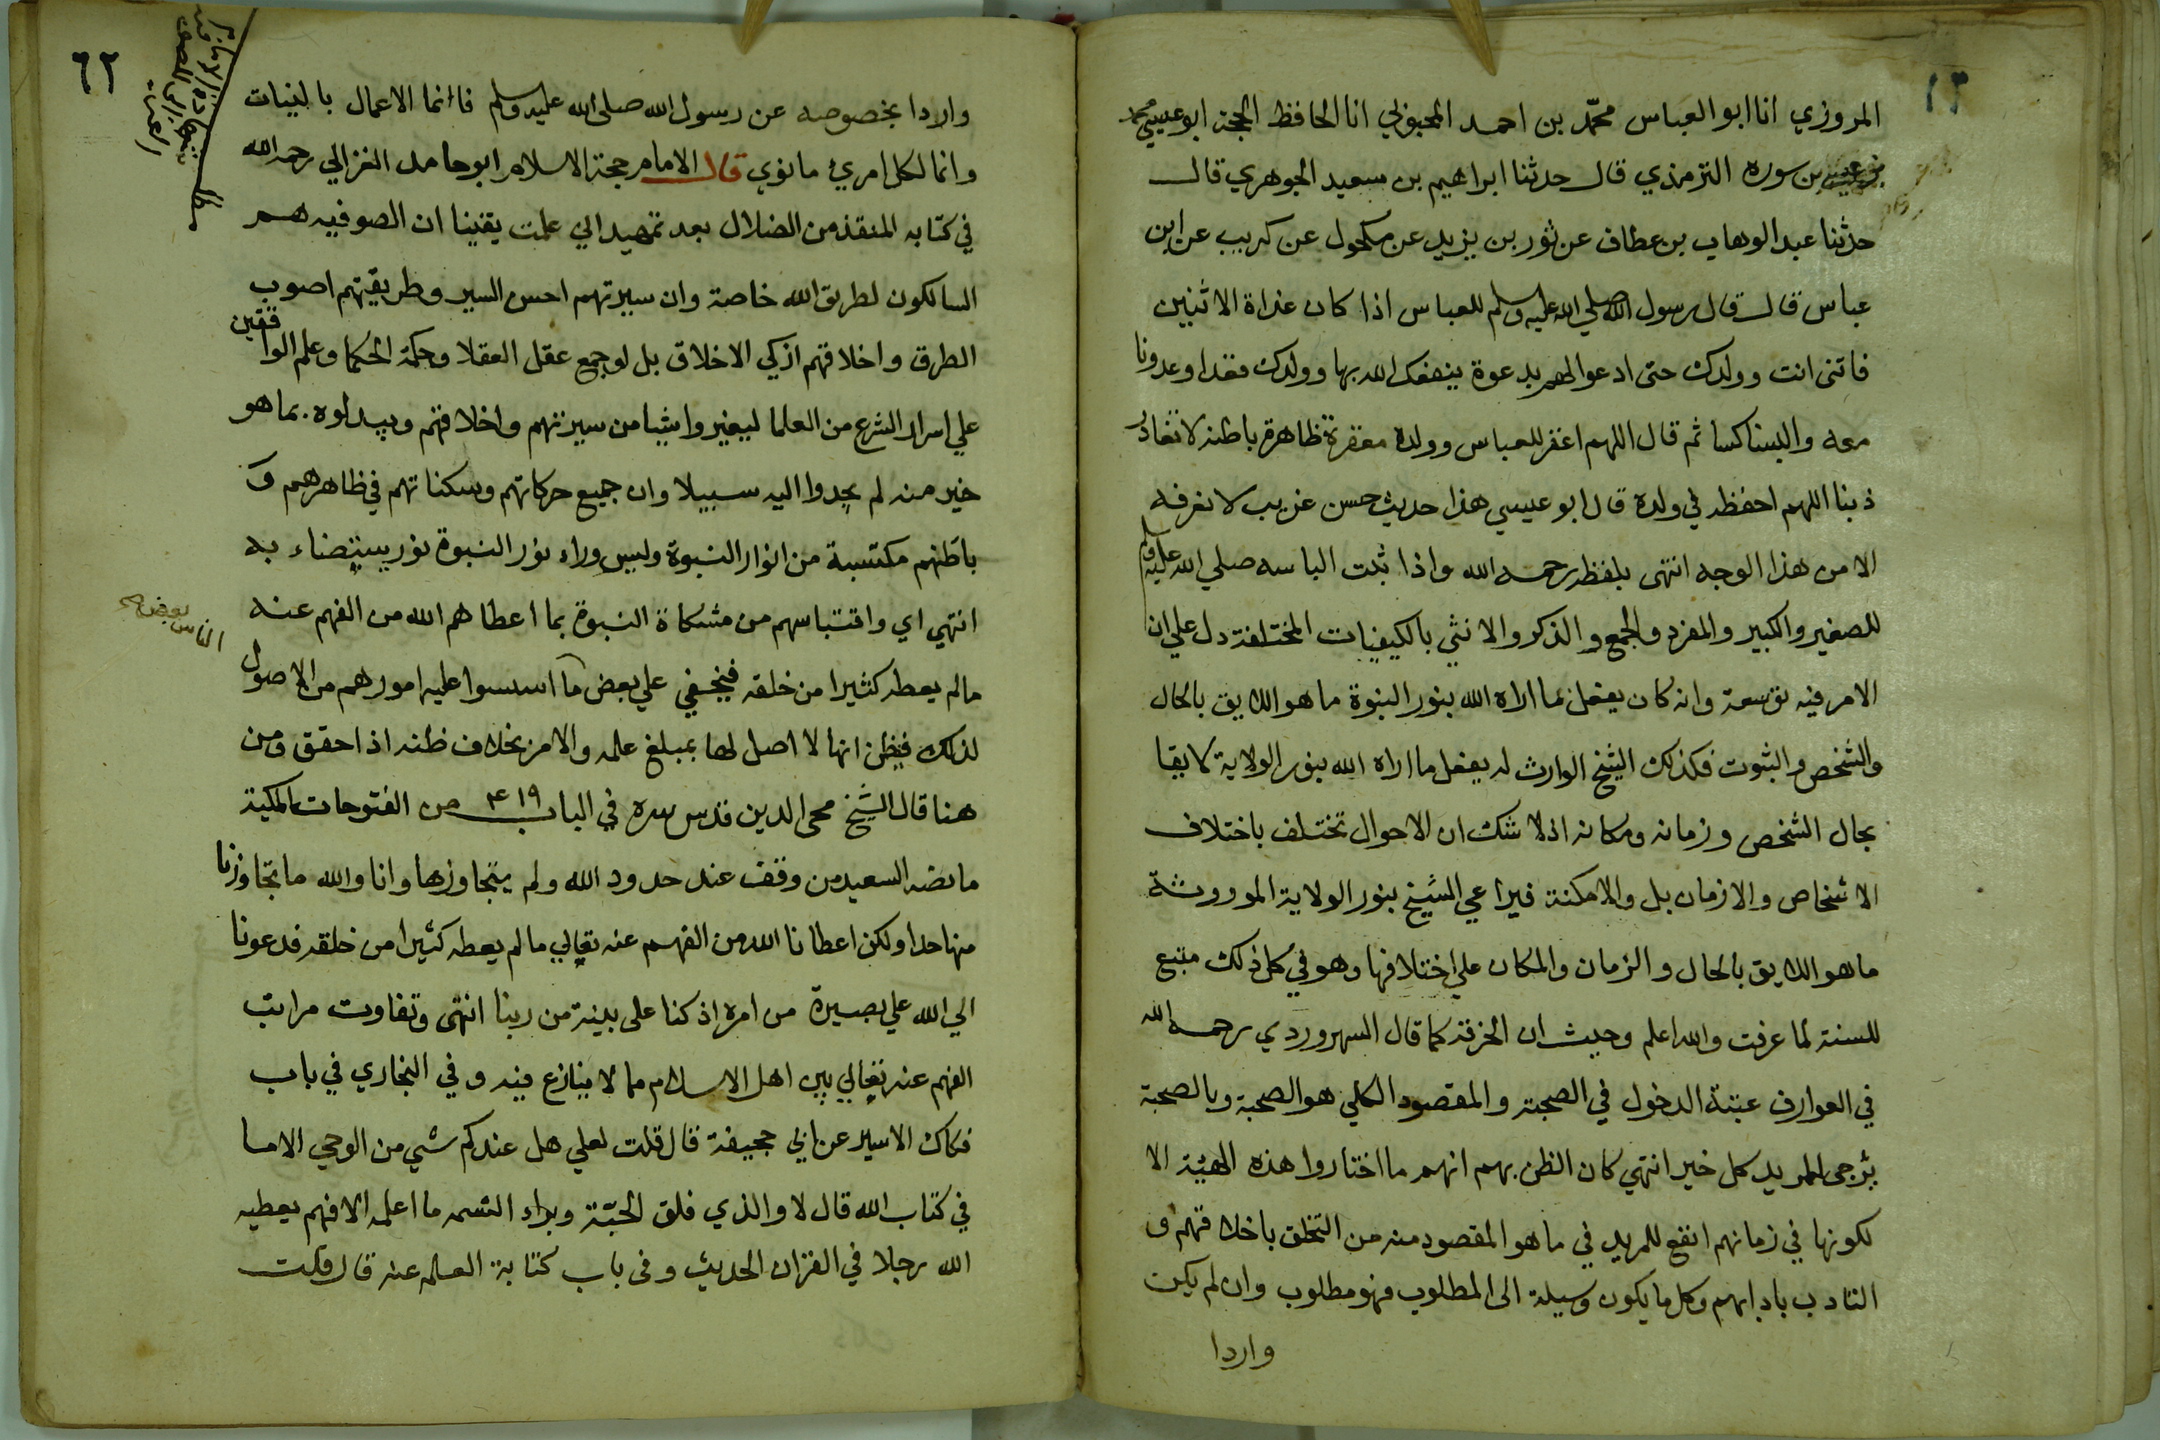 المروزي انا ابو العباس محمّد بن احمد المحبوبي انا الحافظ الحجة ابو عيسي محمد
بن عيسي بن سوره الترمذي قال حدثنا ابراهيم بن سعيد الجوهري قال
حدثنا عبد الوهاب بن عطاف عن ثور بن يزيد عن مكحول عن كريب عن ابن
عباس قال قال رسول الله صلي الله عليه وسلم للعباس اذا كان غداة الاثنين
فاتني انت وولدك حتى ادعو الهم بدعوة ينفعك الله بها وولدك فغدا وغدونا
معه والبسنا كسا ثم قال اللهم اغفر للعباس وولده مغفرة ظاهرة باطنه لا تغادر
ذبنا اللهم احفظه في ولده قال ابو عيسي هذا حديث حسن غريب لا نعرفه
الا من هذا الوجه انتهى بلفظه رحمه الله واذا ثبت الباسه صلي الله عليه وسلم
للصغير والكبير والمفرد والجمع والذكر والانثي بالكيفيات المختلفة دل علي ان
الامر فيه توسعة وانه كان يفعل بما اراه الله بنور النبوة ما هو اللايق بالحال
والشخص والثبوت فكذلك الشيخ الوارث له يفعل ما اراه الله بنور الولاية لايقا
بحال الشخص وزمانه ومكانه اذ لا شك ان الاحوال تختلف باختلاف
الاشخاص والازمان بل والامكنة فيراعي الشيخ بنور الولاية الموروثة
ما هو اللايق بالحال والزمان والمكان علي اختلافها وهو في كل ذلك متبع
للسنة لما عرفت والله اعلم وحيث ان الخرقة كما قال السهروردي رحمه الله
في العوارف عتبة الدخول في الصحبة والمقصود الكلي هو الصحبة وبالصحبة
يرجى للمريد كل خير انتهي كان الظن بهم انهم ما اختاروا هذه الهيئة الا
لكونها في زمانهم انفع للمريد في ما هو المقصود منه من التخلق باخلاقهم و
التادب بادابهم وكل ما يكون وسيلة الى المطلوب فهو مطلوب وان لم يكن
واردا
٦٢
واردا بخصوصه عن رسول الله صلى الله عليه وسلم فاانما الاعمال بالنيات
وانما لكل امرئ ما نوي قال الامام حجة الاسلام ابو حامد الغزالي رحمه الله
في كتابه المنقذ من الضلال بعد تمهيد اني علمت يقينا ان الصوفيه هم
السالكون لطريق الله خاصة وان سيرتهم احسن السير وطريقتهم اصوب
الطرق واخلاقهم ازكي الاخلاق بل لو جمع عقل العقلا وحكمة الحكما وعلم الواقفين
علي اسرار الشرع من العلما ليغيروا شيا من سيرتهم واخلاقهم ويبدلوه بما هو
خير منه لم يجدوا اليه سبيلا وان جميع حركاتهم وسكناتهم في ظاهرهم و
باطنهم مكتسبة من انوار النبوة وليس وراء نور النبوة نور يستضاء به
انتهي اي واقتباسهم من مشكاة النبوة بما اعطاهم الله من الفهم عنه
ما لم يعطه كثيرا من خلقه فيخفي علي بعض ما اسسوا عليه امورهم من الاصول
الناس بعض
لذلك فيظن انها لا اصل لها بمبلغ علمه والامر بخلاف ظنه اذا حقق ومن
هنا قال الشيخ محي الدين قدس سره في الباب ٤١٩ من الفتوحات المكية
ما نصه السعيد من وقف عند حدود الله ولم يتجاوزها وانا والله ما تجاوزنا
منها حدا ولكن اعطانا الله من الفهم عنه تعالي ما لم يعطه كثيرا من خلقه فدعونا
الي الله علي بصيرة من امره اذ كنا على بينة من ربنا انتهى وتفاوت مراتب
الفهم عنه تعالي بين اهل الاسلام مما لا ينازع فيه وفي البخاري في باب
فكاك الاسير عن ابي جحيفة قال قلت لعلي هل عندكم شي من الوحي الا ما
في كتاب الله قال لا والذي فلق الحبّة وبراء النسمه ما اعلمه الا فهم يعطيه
الله رجلا في القران الحديث وفي باب كتابة العلم عنه قال قلت